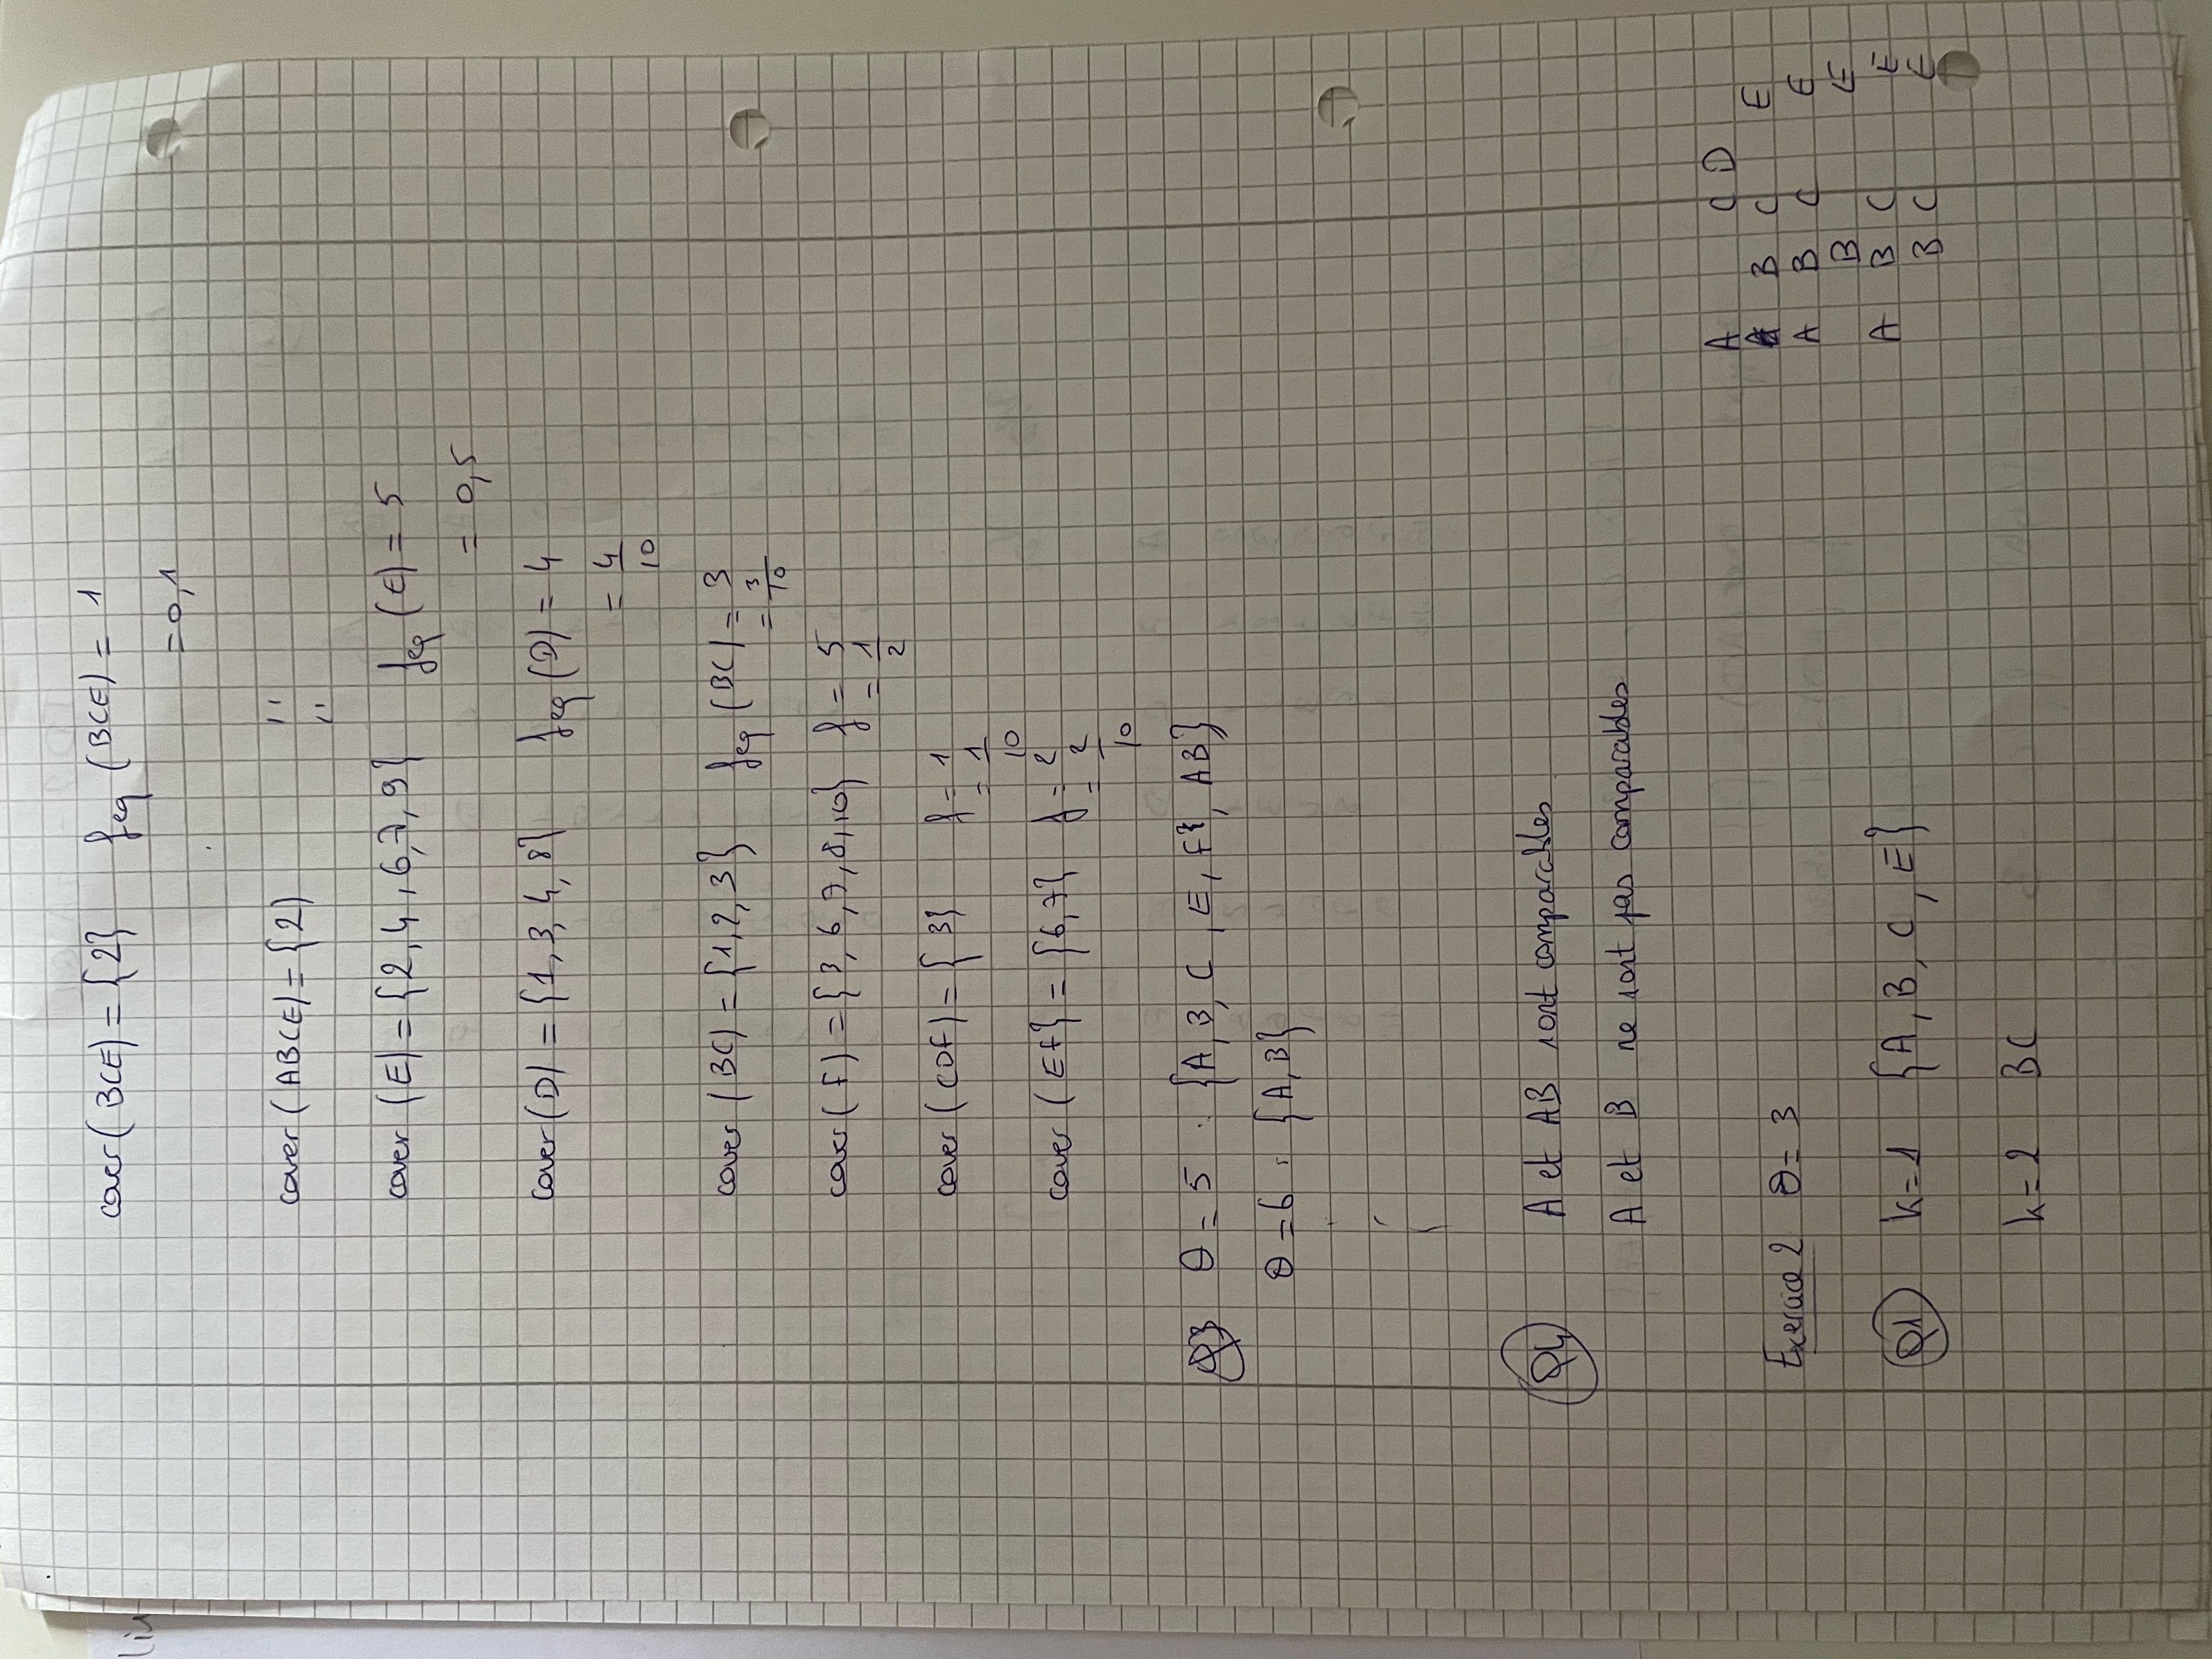 cover(BCE) = {2} feq(BCE) = 1
= 0,1
cover(ABCE) = {2} "
"
cover(E) = {2,4,6,7,9} feq(E) = 5
= 0,5
cover(D) = {1,3,4,8} feq(D) = 4
= 4/10
cover(BC) = {1,2,3} feq(BC) = 3
= 3/10
cover(F) = {3,6,7,8,10} f = 5
= 1/2
cover(CDF) = {3} f = 1
= 1/10
cover(EF} = {6,7} f = 2
= 2/10
Q3 θ = 5 : {A,B,C,E,F}, AB}
θ = 6 : {A,B}
Q4 A et AB sont comparables
A et B ne sont pas comparables
A C D
Exercice 2 θ = 3 B C E
A B C E
B E
Q1 k=1 {A,B,C,E} A B C E
B C E
k=2 BC